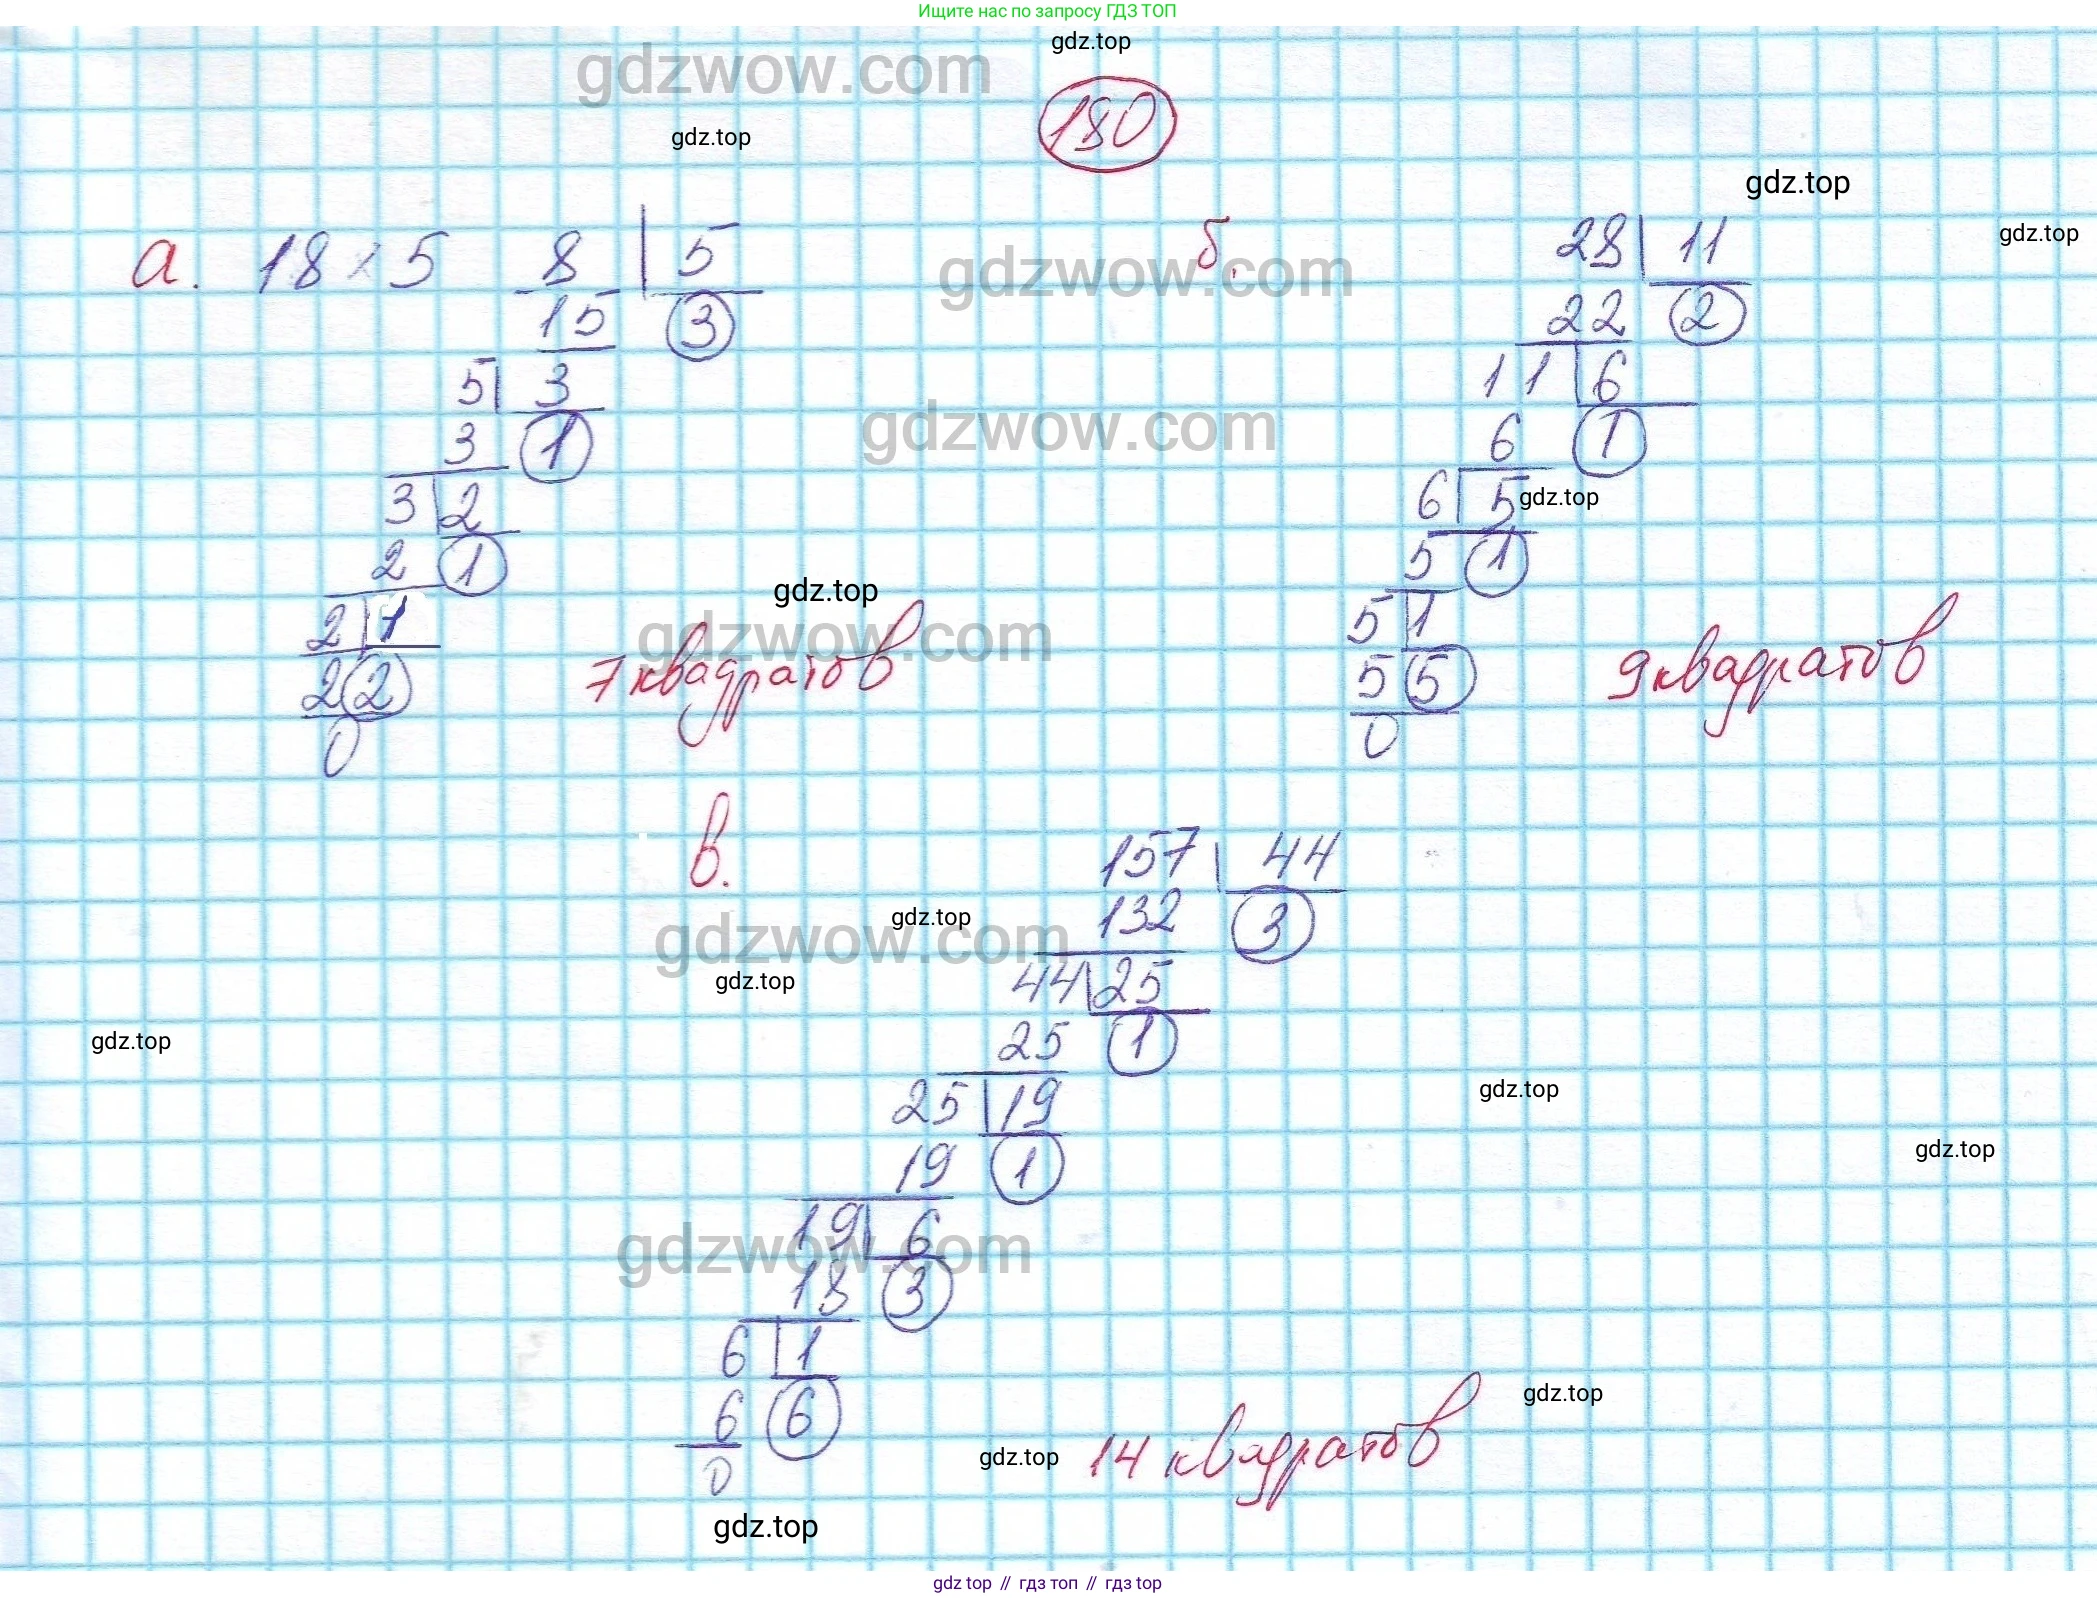 Ищите нас по запросу ГДЗ ТОП
gdz.top
gdzwow.com
180
gdz.top
gdz.top
gdz.top
а. 18 × 5 8 | 5
15 3
5 | 3
3 1
3 | 2
2 1
2 | 1
2 2
0
7 квадратов
gdzwow.com
gdzwow.com
gdz.top
gdzwow.com
б. 28 | 11
22 2
11 | 6
6 1
6 | 5
gdz.top
5 1
5 | 1
5 5
0
9 квадратов
в. 157 | 44
132 3
44 | 25
25 1
25 | 19
19 1
19 | 6
18 3
6 | 1
6 6
0
14 квадратов
gdz.top
gdzwow.com
gdz.top
gdz.top
gdz.top
gdz.top
gdzwow.com
gdz.top
gdz.top
gdz.top
gdz top // гдз топ // гдз top